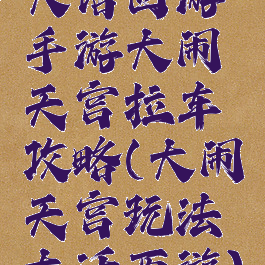 大话西游
手游大闹
天宫拉车
攻略(大闹
天宫玩法
大话西游)